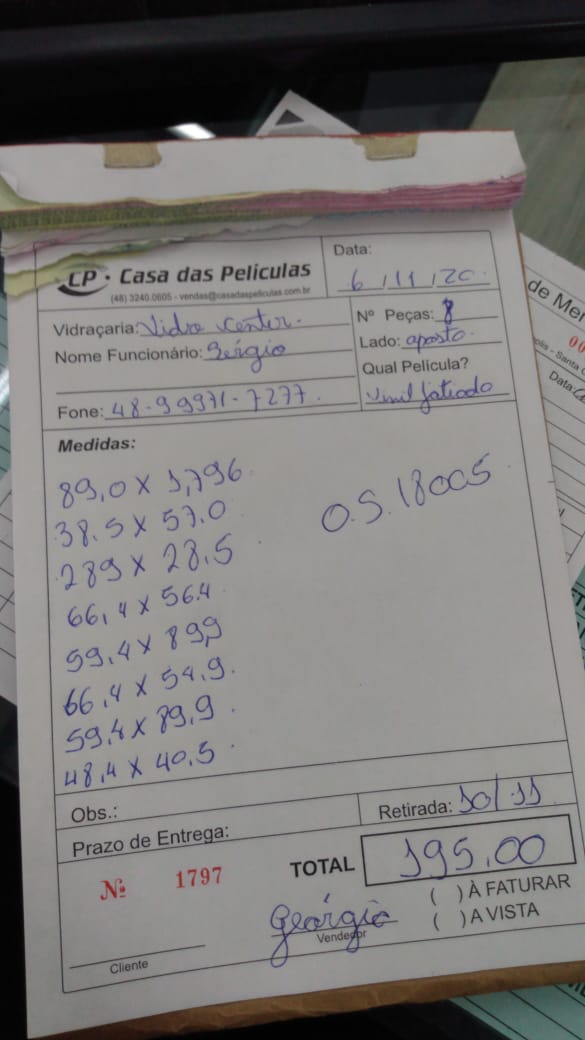 CP · Casa das Películas
(48) 3240.0605 - vendas@casadaspeliculas.com.br
Data:
6/11/20
Vidraçaria: Vidro Center.
Nome Funcionário: Sérgio
Fone: 48-99971-7277.
Nº Peças: 8
Lado: oposto.
Qual Película?
Vinil jateado
Medidas:
89,0 X 1,796
38.5 X 57.0
289 X 28.5
66,4 X 56.4
59,4 X 89,9
66,4 X 54,9.
59,4 X 89,9.
48,4 X 40,5
O.S. 18005
Obs.:
Retirada: 10/11
Prazo de Entrega:
Nº 1797
TOTAL 195,00
( ) À FATURAR
( ) A VISTA
Geórgia
Vendedor
Cliente
de Mer
polis - Santa C
00
Data: